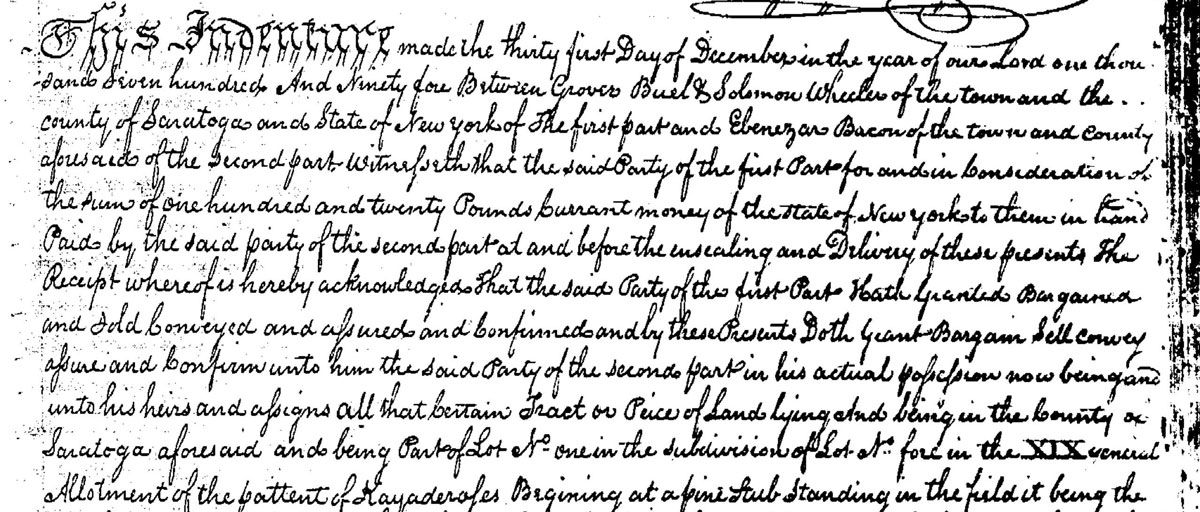 This Indenture made the thirty first Day of December in the year of our Lord one thou
sand Seven hundred And Ninety fore Between Grover Buel & Solomon Wheeler of the town and the
county of Saratoga and State of New york of The first part and Ebenezar Bacon of the town and County
aforesaid of the Second part Witnesseth that the said Party of the first Part for and in Consideration of
the sum of one hundred and twenty Pounds Currant money of the state of New york to them in hand
Paid by the said party of the second part at and before the ensealing and Delivery of these presents The
Receipt whereof is hereby acknowledged That the said Party of the first Part Hath Granted Bargained
and Sold Conveyed and assured and Confirmed and by these Presents Doth Grant Bargain Sell convey
assure and Confirm unto him the said Party of the second part in his actual possession now being and
unto his heirs and assigns all that Certain Tract or Peice of Land lying And being in the County of
Saratoga aforesaid and being Part of Lot No. one in the subdivision of Lot No. fore in the XIX general
Allotment of the pattent of Kayaderoses Begining at a pine Stub Standing in the field it being the